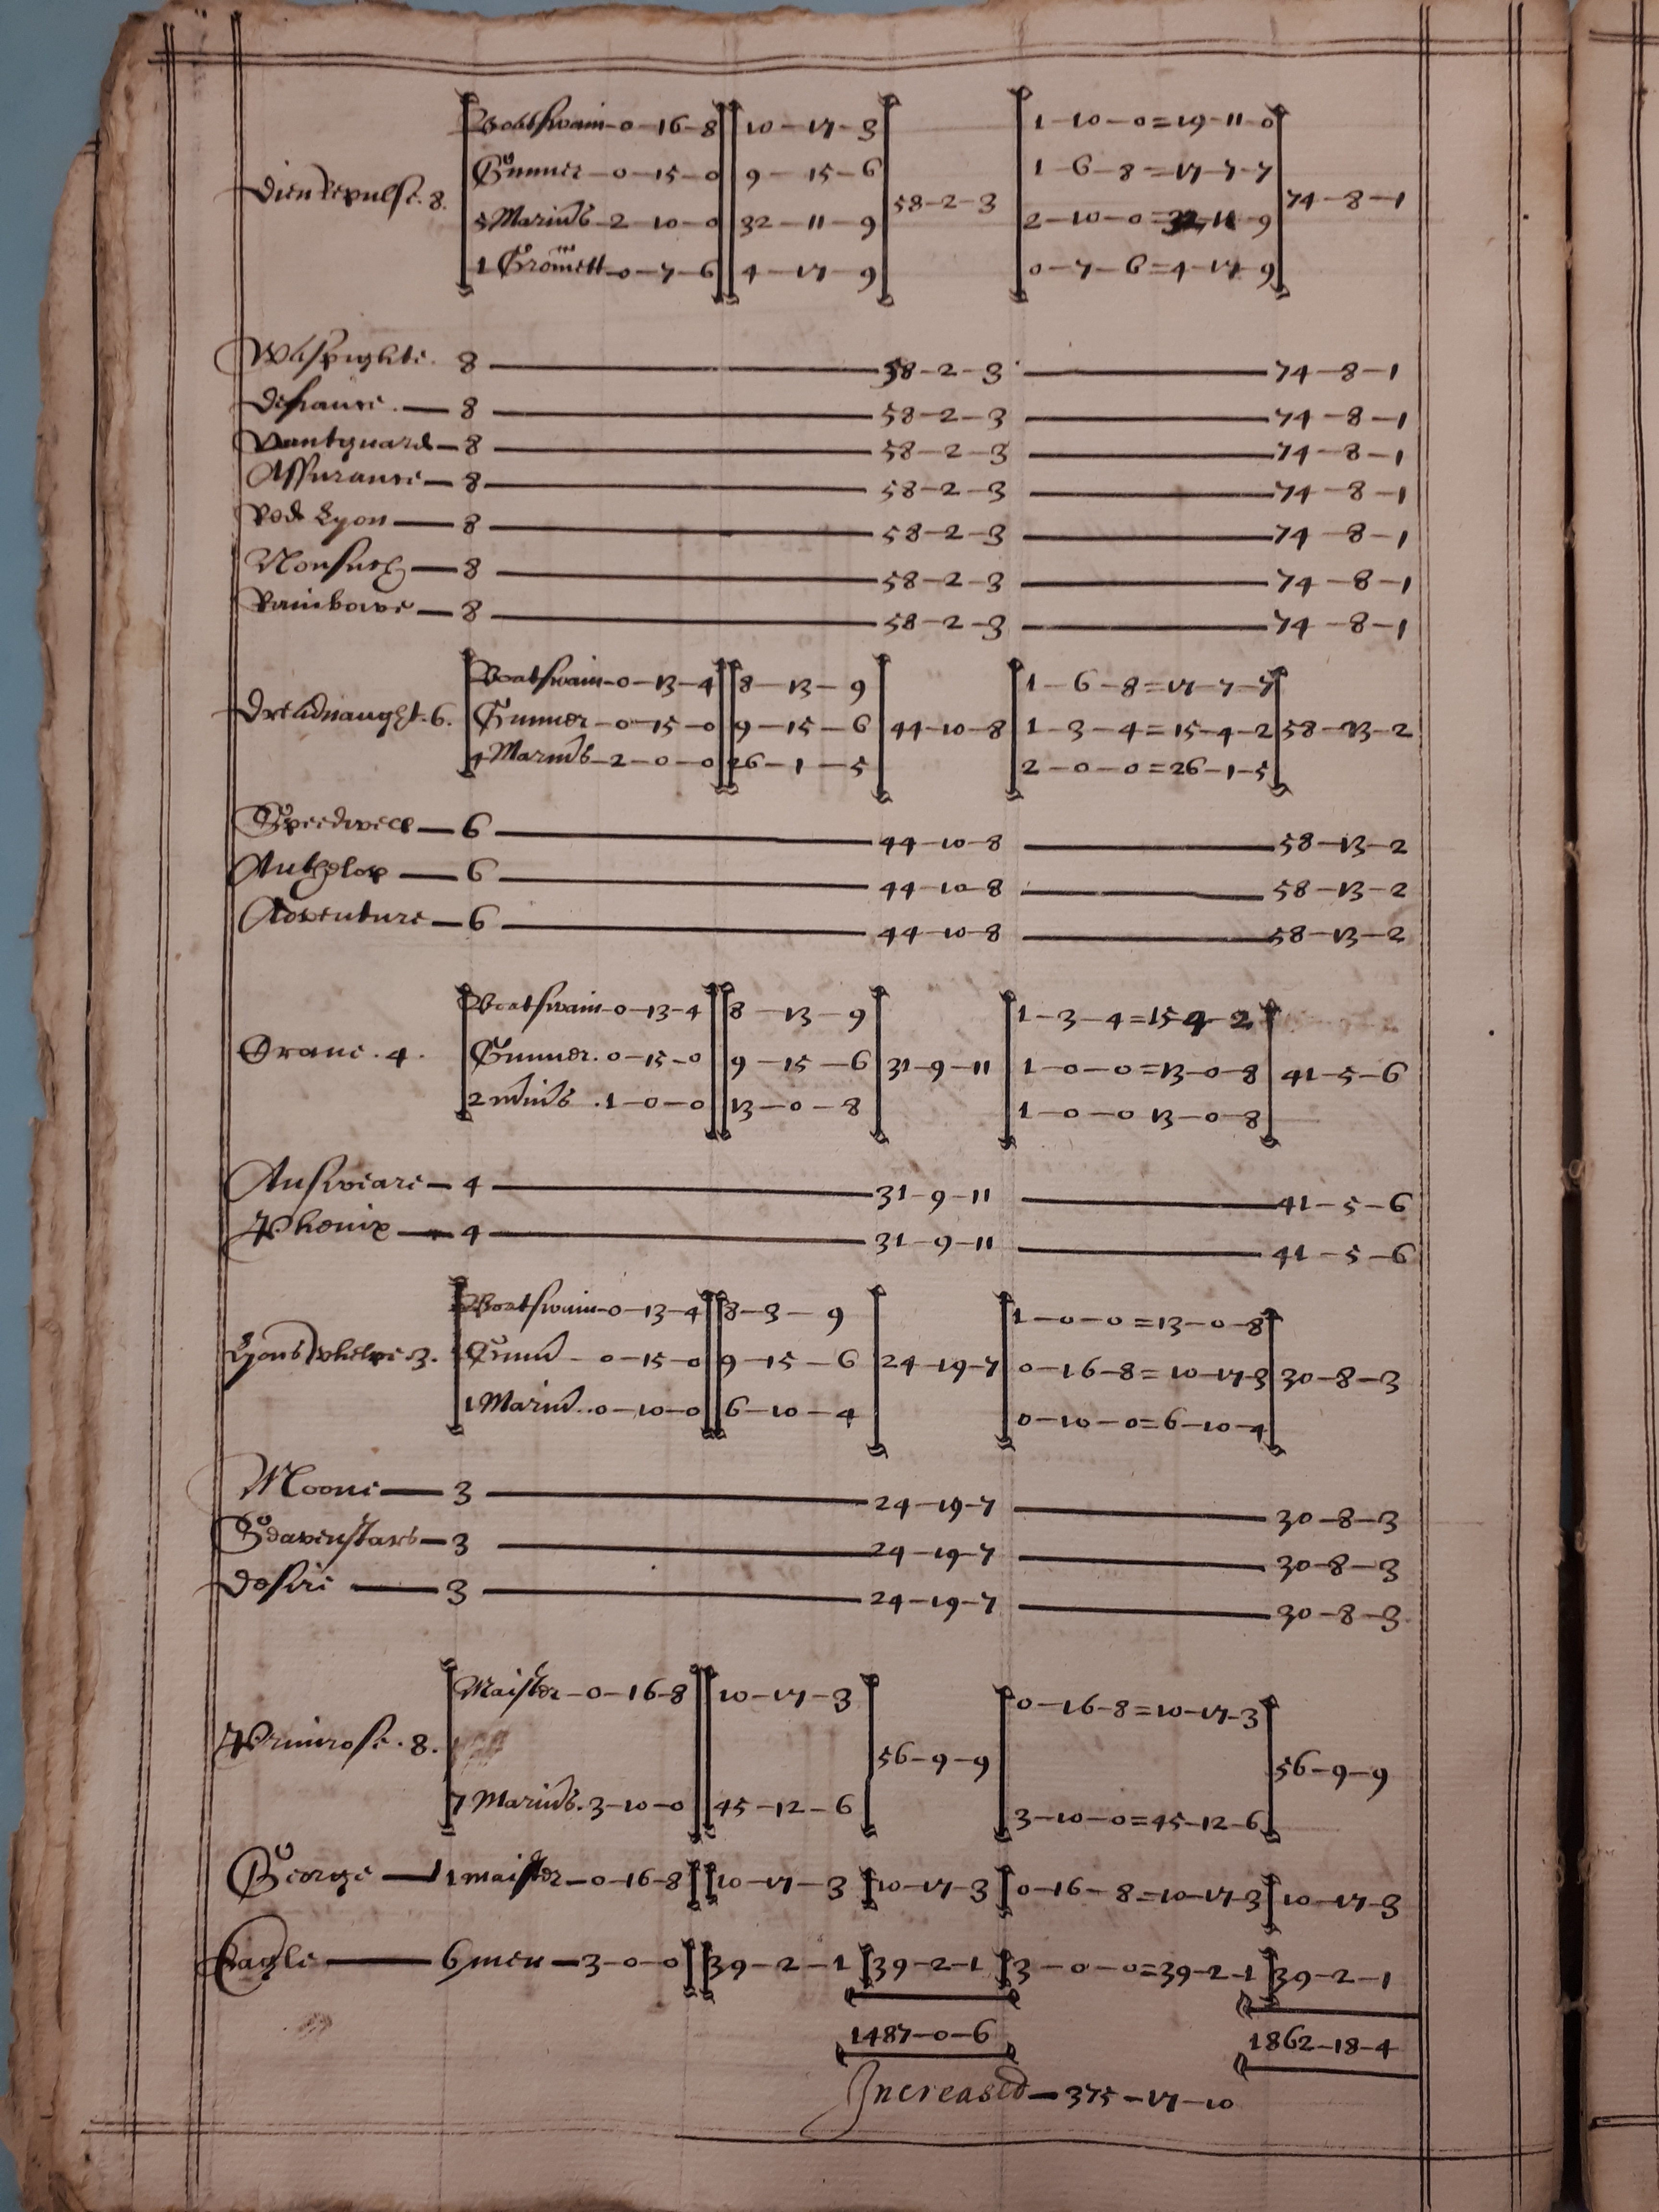 Boatswain-0-16-8 10-17-3 1-10-0=19-11-0
Gunner-0-15-0 9-15-6 1-6-8=17-7-7
Dieu Repulse. 8. 58-2-3 74-8-1
5 Marinrs-2-10-0 32-11-9 2-10-0=32-11-9
1 Gromett-0-7-6 4-17-9 0-7-6=4-17-9
Wasspighte. 8 58-2-3 74-8-1
Defiance. 8 58-2-3 74-8-1
Vantguard 8 58-2-3 74-8-1
Assurance 8 58-2-3 74-8-1
Red Lyon 8 58-2-3 74-8-1
Nonsuch 8 58-2-3 74-8-1
Rainbowe 8 58-2-3 74-8-1
Boatswain-0-13-4 8-13-9 1-6-8=17-7-7
Dreadnaught. 6. Gunner-0-15-0 9-15-6 44-10-8 1-3-4=15-4-2 58-13-2
4 Marinrs-2-0-0 26-1-5 2-0-0=26-1-5
Speedwell 6 44-10-8 58-13-2
Anthelop 6 44-10-8 58-13-2
Adventure 6 44-10-8 58-13-2
Boatswain-0-13-4 8-13-9 1-3-4=15-4-2
Crane. 4. Gunner. 0-15-0 9-15-6 31-9-11 1-0-0=13-0-8 41-5-6
2 mrinrs. 1-0-0 13-0-8 1-0-0 13-0-8
Answeare 4 31-9-11 41-5-6
Phenix 4 31-9-11 41-5-6
Boatswain-0-13-4 8-3-9 1-0-0=13-0-8
Lyons whelpe. 3. Gunnr-0-15-0 9-15-6 24-19-7 0-16-8=10-17-3 30-8-3
1 Marinr. 0-10-0 6-10-4 0-10-0=6-10-4
Moone 3 24-19-7 30-8-3
3 24-19-7 30-8-3
Desire 3 24-19-7 30-8-3
Maister-0-16-8 10-17-3 0-16-8=10-17-3
Primrose. 8. 56-9-9 56-9-9
7 Marinrs. 3-10-0 45-12-6 3-10-0=45-12-6
George 1 1 maister-0-16-8 10-17-3 10-17-3 0-16-8=10-17-3 10-17-3
Eagle 6 men-3-0-0 39-2-1 39-2-1 3-0-0=39-2-1 39-2-1
1487-0-6 1862-18-4
Increased-375-17-10